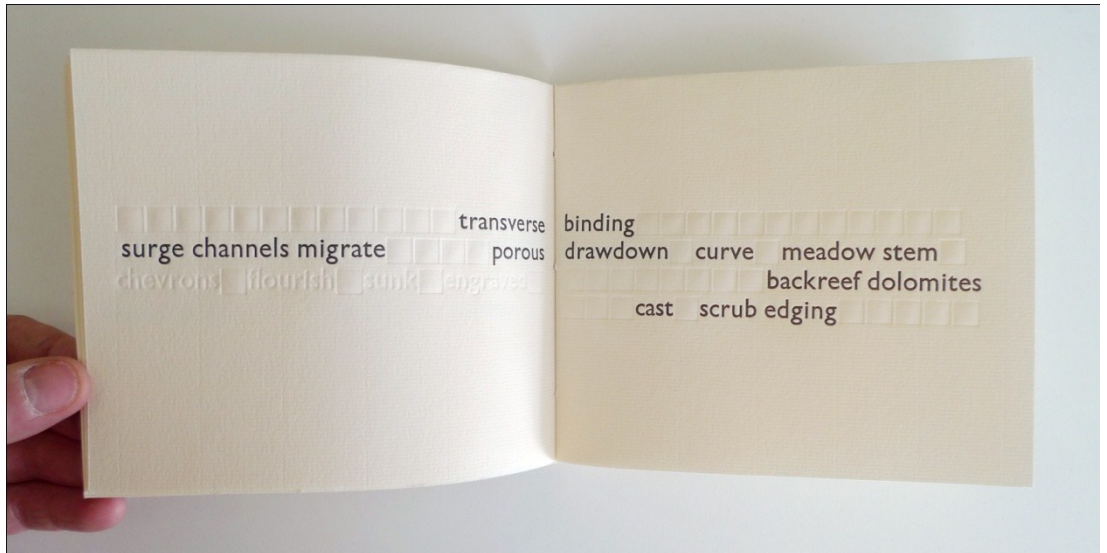 transverse
surge channels migrate porous
chevrons flourish sunk engraves
binding
drawdown curve meadow stem
backreef dolomites
cast scrub edging